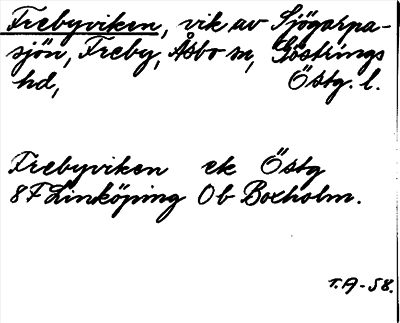 Frebyviken, vik av Sjögarpa-
sjön, Freby, Åsbo sn, Göstrings
hd, Östg. l.
Frebyviken ek Östg
8F Linköping 0b Boxholm.
T.A-58.